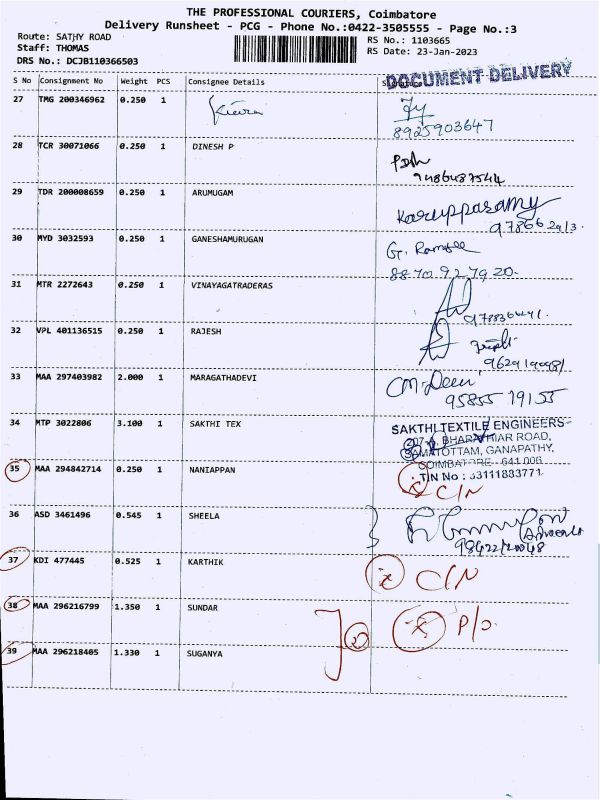 THE PROFESSIONAL COURIERS, Coimbatore
Delivery Runsheet - PCG - Phone No.:0422-3505555 - Page No.:3
Route: SATHY ROAD
Staff: THOMAS
DRS No.: DCJB110366503
RS No.: 1103665
RS Date: 23-Jan-2023
S No Consignment No Weight PCS Consignee Details
DOCUMENT DELIVERY
27 TMG 200346962 0.250 1
8925903647
28 TCR 30071066 0.250 1 DINESH P
9486487544
29 TDR 200008659 0.250 1 ARUMUGAM
Karuppasamy
30 MYD 3032593 0.250 1 GANESHAMURUGAN
8870927920
31 MTR 2272643 0.250 1 VINAYAGATRADERAS
32 VPL 401136515 0.250 1 RAJESH
33 MAA 297403982 2.000 1 MARAGATHADEVI
95855 79155
34 MTP 3022806 3.100 1 SAKTHI TEX
SAKTHI TEXTILE ENGINEERS
207-A, BHARATHIAR ROAD,
GANAPATHY,
COIMBATORE - 641 006
TIN No : 33111883771
35 MAA 294842714 0.250 1 NANIAPPAN
x C/N
36 ASD 3461496 0.545 1 SHEELA
37 KDI 477445 0.525 1 KARTHIK
x C/N
38 MAA 296216799 1.350 1 SUNDAR
2 x P/O
39 MAA 296218405 1.330 1 SUGANYA